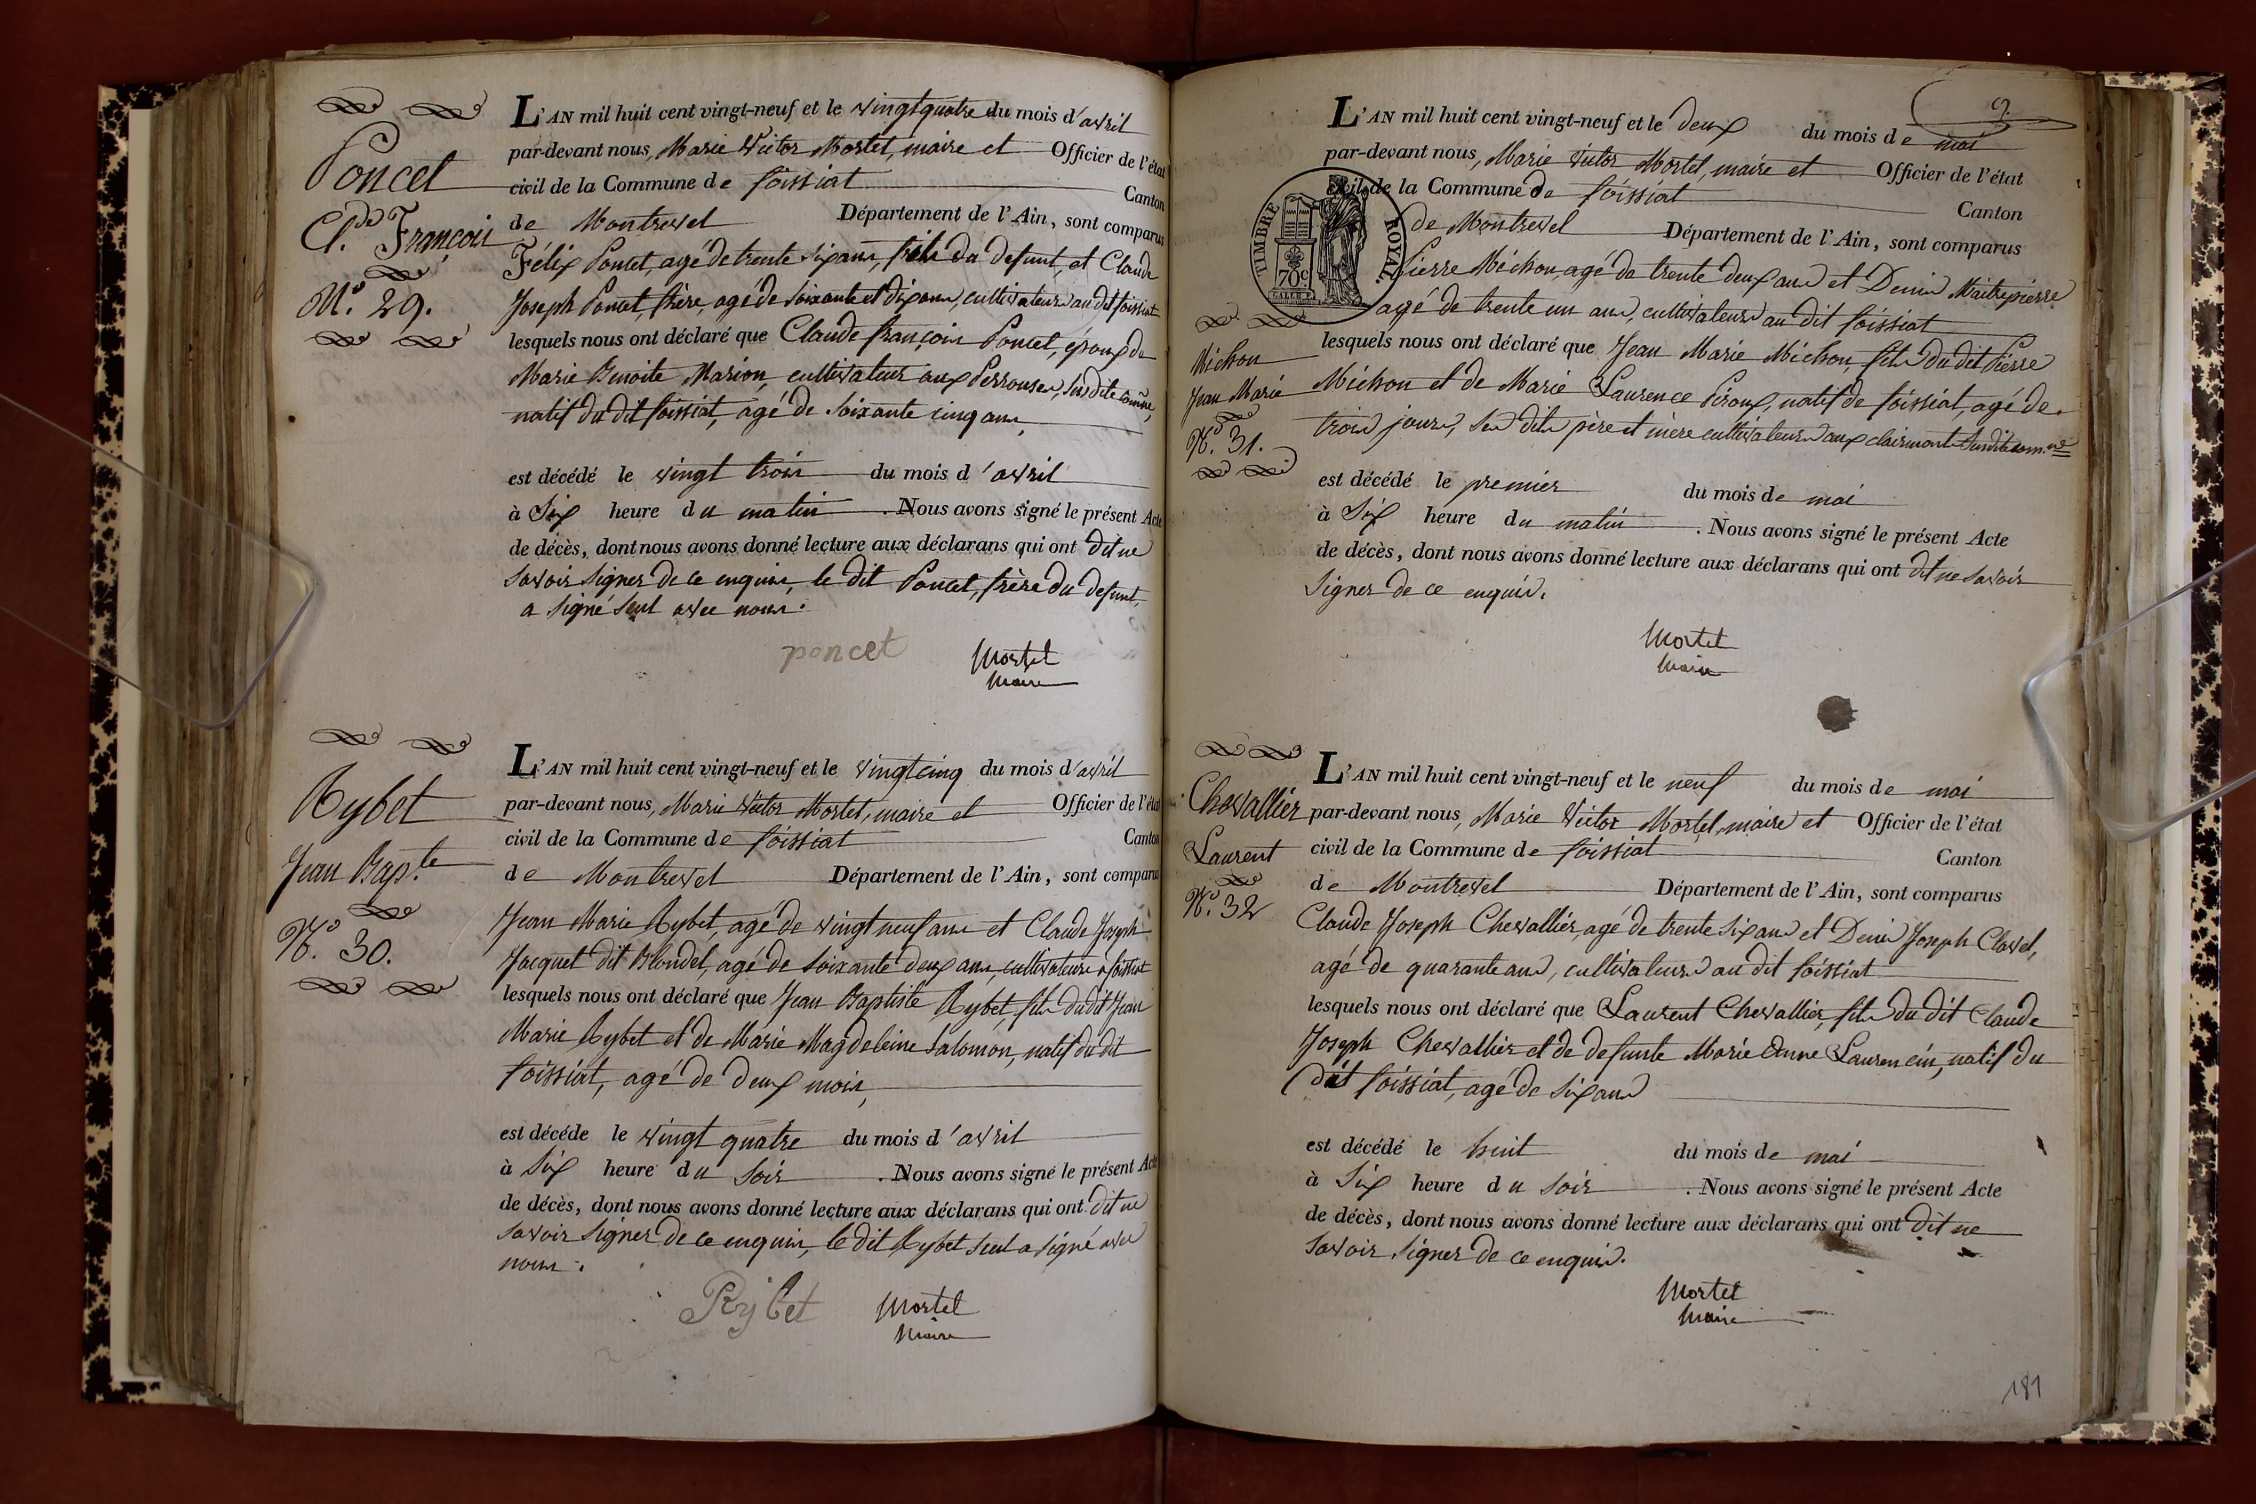 Poncet
Cl.de François
N.o 29.
L'AN mil huit cent vingt-neuf et le vingt quatre du mois d'avril
par-devant nous, Marie Victor Mortel, maire et Officier de l'état
civil de la Commune de foissiat Canton
de Montrevel Département de l'Ain, sont comparus
Félix Poncet, agé de trente six ans, fils du defunt, et Claude
Joseph Poncet, frère, agé de soixante et dix ans, cultivateurs au dit foissiat
lesquels nous ont déclaré que Claude françois Poncet, époux de
Marie Benoite Marion, cultivateur aux Perrouses, susdite comune,
natif du dit foissiat, agé de soixante cinq ans,
est décédé le vingt trois du mois d'avril
à Six heure du matin . Nous avons signé le présent Acte
de décès, dont nous avons donné lecture aux déclarans qui ont dit ne
savoir signer de ce enquis, le dit Poncet, frère du defunt,
a signé seul avec nous.
poncet Mortel
Maire
Rybet
Jean Bap.te
N.o 30.
L'AN mil huit cent vingt-neuf et le vingt cinq du mois d'avril
par-devant nous, Marie Victor Mortel, maire et Officier de l'état
civil de la Commune de foissiat Canton
de Montrevel Département de l'Ain, sont comparus
Jean Marie Rybet, agé de vingt neuf ans et Claude Joseph
Jacquet dit Blondel, agé de soixante deux ans, cultivateurs a foissiat
lesquels nous ont déclaré que Jean Baptiste Rybet, fils du dit Jean
Marie Rybet et de Marie Magdeleine Salomon, natif du dit
foissiat, agé de deux mois,
est décédé le vingt quatre du mois d'avril
à Six heure du soir . Nous avons signé le présent Acte
de décès, dont nous avons donné lecture aux déclarans qui ont dit ne
savoir signer de ce enquis, le dit Rybet seul a signé avec
nous.
Rybet Mortel
Maire
9.
TIMBRE ROYAL.
70c
Michon
Jean Marie
N.o 31.
L'AN mil huit cent vingt-neuf et le deux du mois de mai
par-devant nous, Marie Victor Mortel, maire et Officier de l'état
civil de la Commune de foissiat Canton
de Montrevel Département de l'Ain, sont comparus
Pierre Michon, agé de trente deux ans et Denis Maitrepierre
agé de trente un ans, cultivateurs au dit foissiat
lesquels nous ont déclaré que Jean Marie Michon, fils du dit Pierre
Michon et de Marie Laurence Piroux, natif de foissiat, agé de
trois jours, ses dits père et mère cultivateurs aux clairmonts susdite com.ne
est décédé le premier du mois de mai
à Six heure du matin . Nous avons signé le présent Acte
de décès, dont nous avons donné lecture aux déclarans qui ont dit ne savoir
signer de ce enquis.
Mortel
Maire
Chevallier
Laurent
N.o 32
L'AN mil huit cent vingt-neuf et le neuf du mois de mai
par-devant nous, Marie Victor Mortel, maire et Officier de l'état
civil de la Commune de foissiat Canton
de Montrevel Département de l'Ain, sont comparus
Claude Joseph Chevallier, agé de trente six ans et Denis Joseph Clavel,
agé de quarante ans, cultivateurs au dit foissiat
lesquels nous ont déclaré que Laurent Chevallier, fils du dit Claude
Joseph Chevallier et de defunte Marie Anne Laurencin, natif du
dit foissiat, agé de six ans
est décédé le huit du mois de mai
à Six heure du soir . Nous avons signé le présent Acte
de décès, dont nous avons donné lecture aux déclarans qui ont dit ne
savoir signer de ce enquis.
Mortel
Maire
181